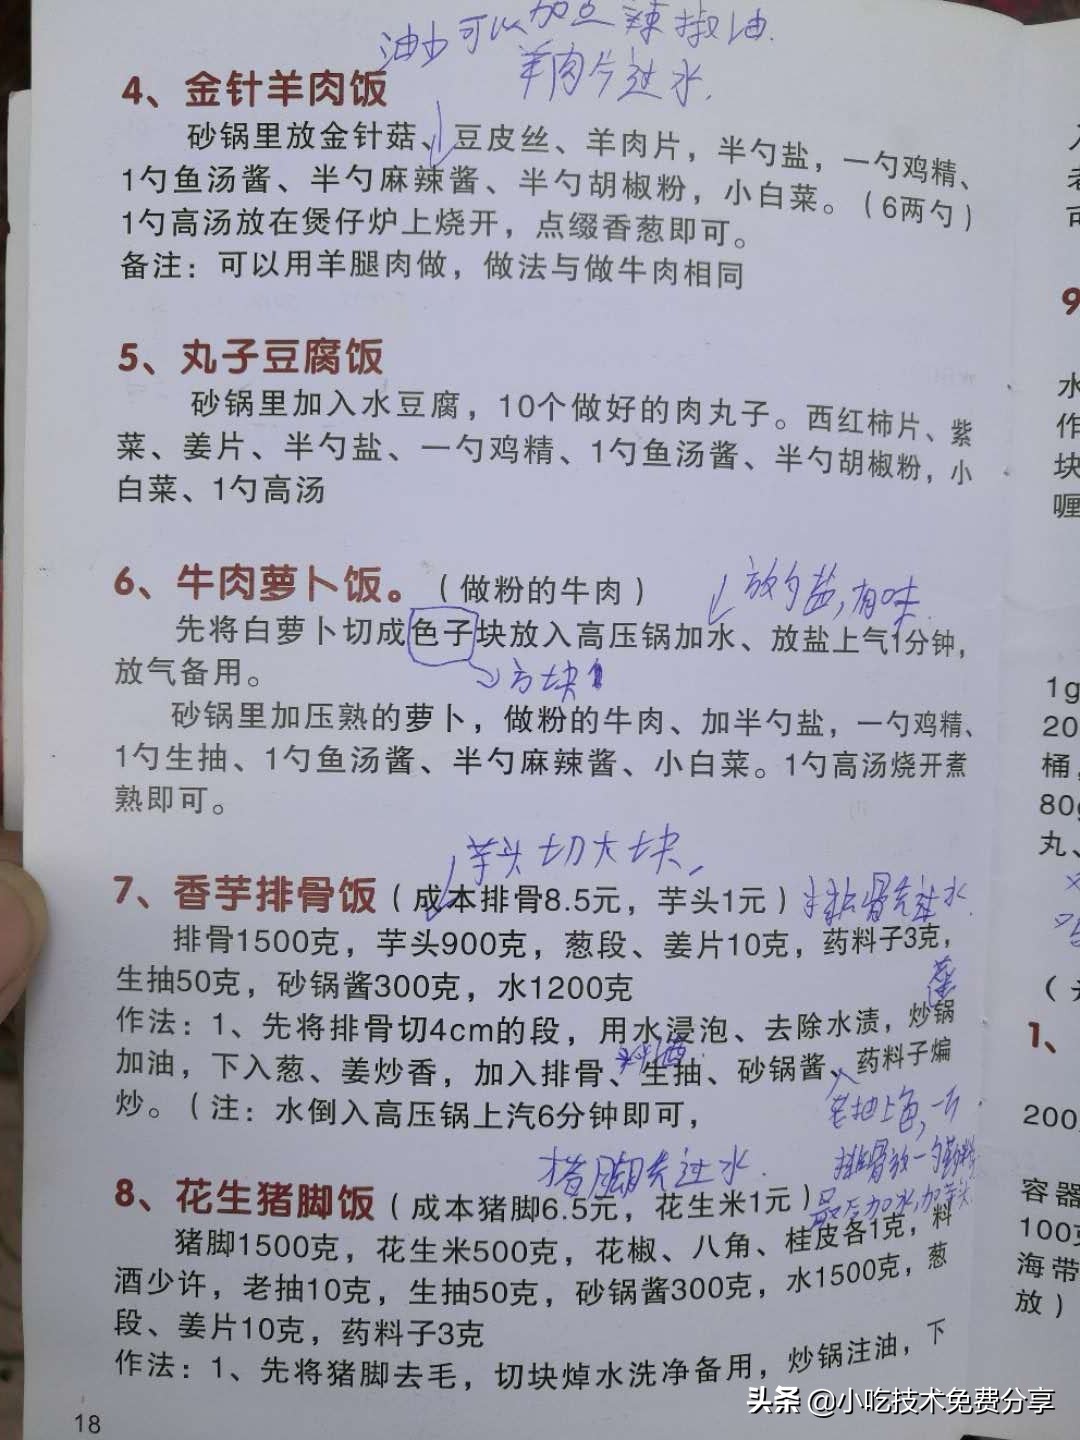 油少可以加点辣椒油.
羊肉片过水.
4、金针羊肉饭
砂锅里放金针菇、豆皮丝、羊肉片，半勺盐，一勺鸡精、
1勺鱼汤酱、半勺麻辣酱、半勺胡椒粉，小白菜。（6两勺）
1勺高汤放在煲仔炉上烧开，点缀香葱即可。
备注：可以用羊腿肉做，做法与做牛肉相同
5、丸子豆腐饭
砂锅里加入水豆腐，10个做好的肉丸子。西红柿片、紫
菜、姜片、半勺盐、一勺鸡精、1勺鱼汤酱、半勺胡椒粉，小
白菜、1勺高汤
6、牛肉萝卜饭。（做粉的牛肉）
放勺盐,有味.
先将白萝卜切成色子块放入高压锅加水、放盐上气1分钟，
放气备用。
方块
砂锅里加压熟的萝卜，做粉的牛肉、加半勺盐，一勺鸡精、
1勺生抽、1勺鱼汤酱、半勺麻辣酱、小白菜。1勺高汤烧开煮
熟即可。
芋头切大块
7、香芋排骨饭（成本排骨8.5元，芋头1元）
排骨先过水.
排骨1500克，芋头900克，葱段、姜片10克，药料子3克，
生抽50克，砂锅酱300克，水1200克
作法：1、先将排骨切4cm的段，用水浸泡、去除水渍，炒锅
加油，下入葱、姜炒香，加入排骨、生抽、砂锅酱、药料子煸
料酒
炒。（注：水倒入高压锅上汽6分钟即可，
老抽上色,一斤
排骨放一勺
最后加水,加芋头
猪脚先过水.
8、花生猪脚饭（成本猪脚6.5元，花生米1元）
猪脚1500克，花生米500克，花椒、八角、桂皮各1克，料
酒少许，老抽10克，生抽50克，砂锅酱300克，水1500克，葱
段、姜片10克，药料子3克
作法：1、先将猪脚去毛，切块焯水洗净备用，炒锅注油，下
18
9
水
作
块
喱
1g
20
桶,
80g
丸、
1、
200
容器
100克
海带
放）
头条 @小吃技术免费分享